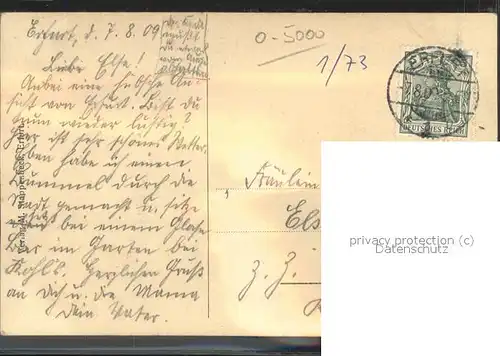 Erfurt, d. 7. 8. 09
Liebe Else!
Anbei eine hübsche An-
sicht von Erfurt. Bist du
nun wieder lustig?
Hier ist sehr schönes Wetter.
Eben habe ich einen
Bummel durch die
Stadt gemacht u. sitze
bei einem Glase
Bier im Garten bei
Kohl's. Herzlichen Gruß
an Dich u. die Mama
Dein Vater.
0-5000
1/73
ERFURT
7.8.09
DEUTSCHES REICH
Fräulein
Els
z. Z.
Verlag M. Stappenbeck, Erfurt
privacy protection (c)
Datenschutz